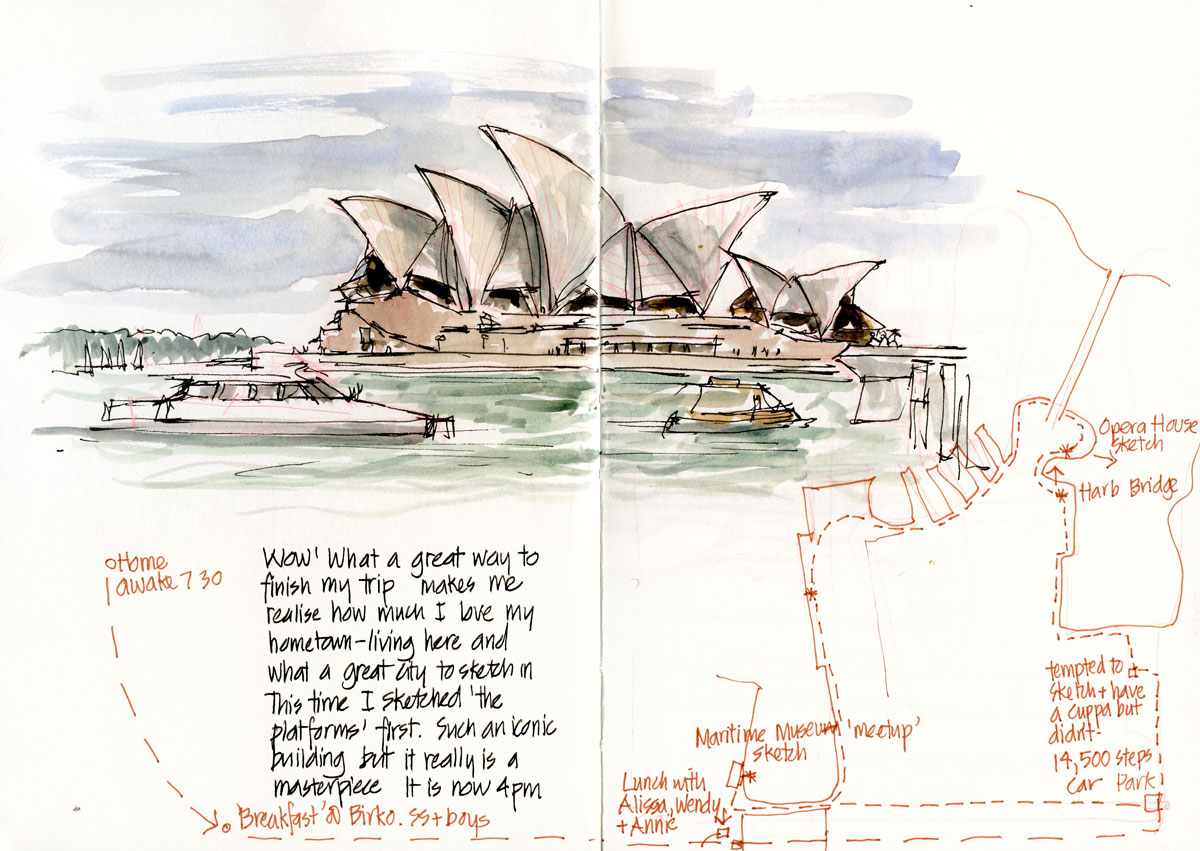 Home
awake 7 30
Wow! What a great way to
finish my trip makes me
realise how much I love my
hometown-living here and
what a great city to sketch in
This time I sketched 'the
platforms' first. Such an iconic
building but it really is a
masterpiece It is now 4pm
'Breakfast' @ Birko. SS + boys
Opera House
sketch
Harb Bridge
tempted to
sketch + have
a cuppa but
didn't-
14,500 steps
Car Park
Maritime Museum 'meetup'
sketch
Lunch with
Alissa, Wendy
+ Annie